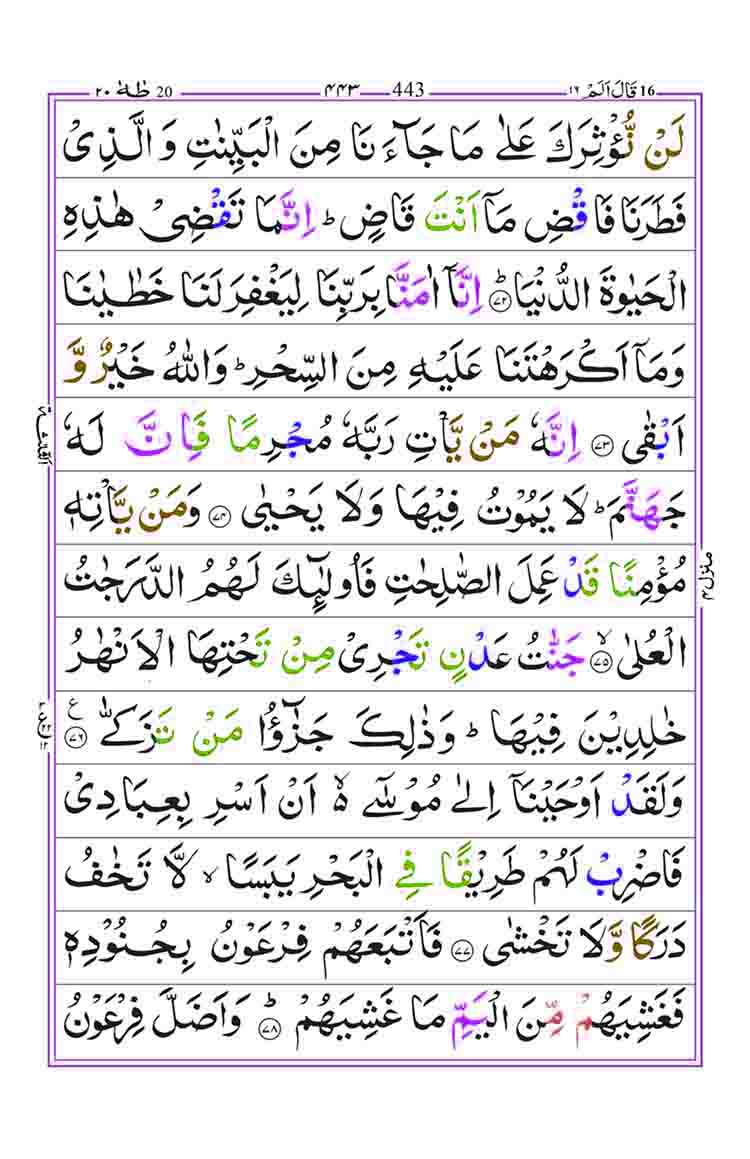 20 طٰهٰ ٢٠ 443 ۴۴۳ 16 قَالَ اَلَمْ ١٦
لَنْ نُّؤْثِرَكَ عَلٰى مَا جَآءَنَا مِنَ الْبَيِّنٰتِ وَالَّذِىْ
فَطَرَنَا فَاقْضِ مَآ اَنْتَ قَاضٍ ؕ اِنَّمَا تَقْضِىْ هٰذِهِ
الْحَيٰوةَ الدُّنْيَا ؕ ﴿۷۲﴾ اِنَّآ اٰمَنَّا بِرَبِّنَا لِيَغْفِرَ لَنَا خَطٰيٰنَا
وَمَآ اَكْرَهْتَنَا عَلَيْهِ مِنَ السِّحْرِ ؕ وَاللّٰهُ خَيْرٌ وَّ
اَبْقٰى ﴿۷۳﴾ اِنَّهٗ مَنْ يَّاْتِ رَبَّهٗ مُجْرِمًا فَاِنَّ لَهٗ
جَهَنَّمَ ؕ لَا يَمُوْتُ فِيْهَا وَلَا يَحْيٰى ﴿۷۴﴾ وَمَنْ يَّاْتِهٖ
مُؤْمِنًا قَدْ عَمِلَ الصّٰلِحٰتِ فَاُولٰٓئِكَ لَهُمُ الدَّرَجٰتُ
الْعُلٰى ۙ ﴿۷۵﴾ جَنّٰتُ عَدْنٍ تَجْرِىْ مِنْ تَحْتِهَا الْاَنْهٰرُ
خٰلِدِيْنَ فِيْهَا ؕ وَذٰلِكَ جَزٰٓؤُا مَنْ تَزَكّٰى ﴿۷۶﴾ ع
وَلَقَدْ اَوْحَيْنَآ اِلٰى مُوْسٰٓى ۙ اَنْ اَسْرِ بِعِبَادِىْ
فَاضْرِبْ لَهُمْ طَرِيْقًا فِى الْبَحْرِ يَبَسًا ۙ لَّا تَخٰفُ
دَرَكًا وَّلَا تَخْشٰى ﴿۷۷﴾ فَاَتْبَعَهُمْ فِرْعَوْنُ بِجُنُوْدِهٖ
فَغَشِيَهُمْ مِّنَ الْيَمِّ مَا غَشِيَهُمْ ؕ ﴿۷۸﴾ وَاَضَلَّ فِرْعَوْنُ
منزل ۴